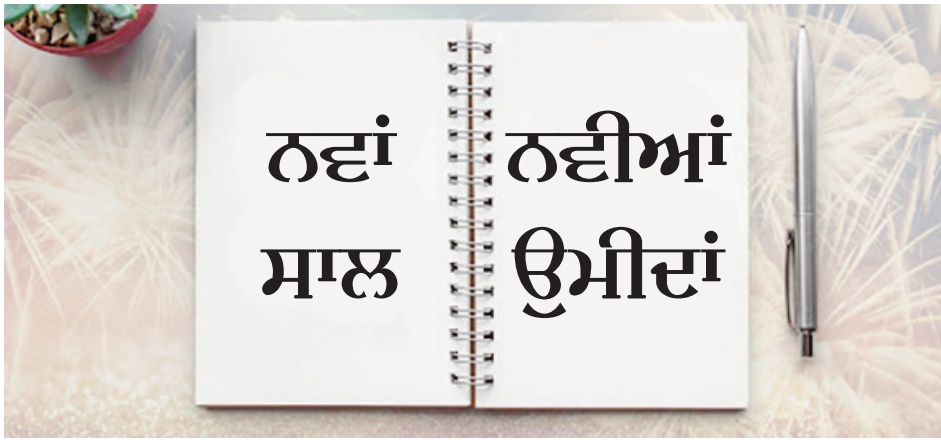 ਨਵਾਂ
ਸਾਲ
ਨਵੀਆਂ
ਉਮੀਦਾਂ